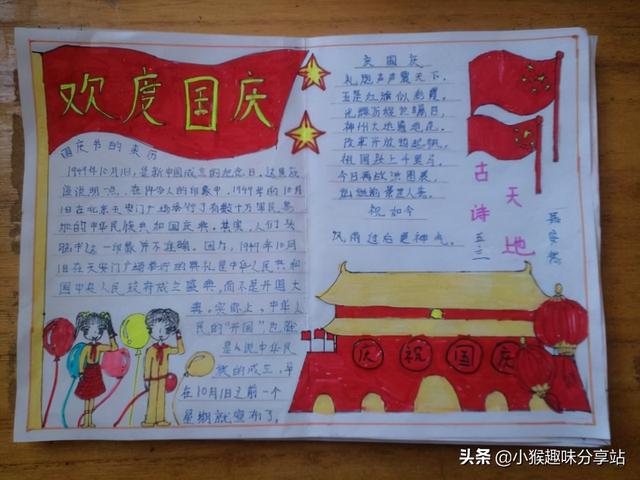 欢度国庆
国庆节的来历
1949年10月1日,是新中国成立的纪念日。这里应
该说明一点,在许多人的印象中,1949年的10月
1日在北京天安门广场举行了有数十万军民参
加的中华人民共和国国庆。其实,人们头
脑中这一印象并不准确。因为,1949年10月
1日在天安门广场举行的典礼是中华人民共和
国中央人民政府成立盛典,而不是开国大
典。实际上,中华人
民的"开国",也就
是人说中华民
族的成立,早
在10月1日之前一个
星期就宣布了。
庆国庆
礼炮声声震天下,
五星红旗似彩霞。
神州大地遍地花。
改革开放
祖国跃上千里马。
今日再战洪图展,
祝如今
风雨过后更神气。
古诗
天地
五三
庆祝国庆
头条 @小猴趣味分享站